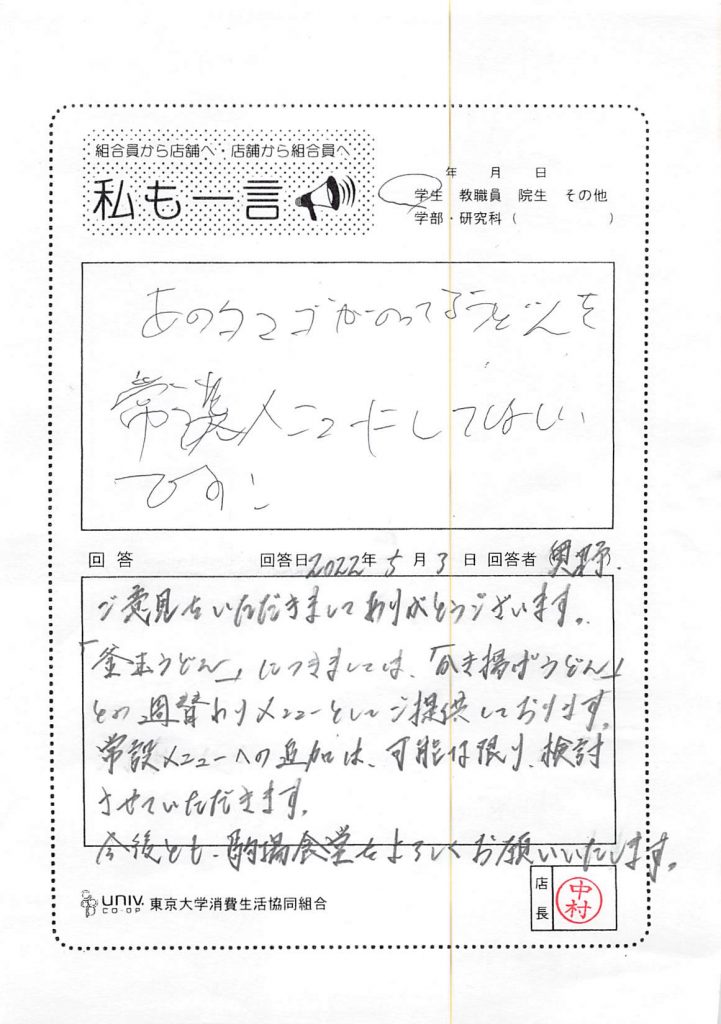 組合員から店舗へ・店舗から組合員へ
私も一言
年 月 日
学生 教職員 院生 その他
学部・研究科( )
あのタマゴがのってるうどんを
常設メニューにしてほしい
です!
回答 回答日2022年5月3日 回答者 奥野.
ご意見をいただきましてありがとうございます。
「釜玉うどん」につきましては、「かき揚げうどん」
との週替わりメニューとしてご提供しております。
常設メニューへの追加は、可能な限り、検討
させていただきます。
今後とも、駒場食堂をよろしくお願いいたします。
UNIV. CO-OP 東京大学消費生活協同組合
店長 中村